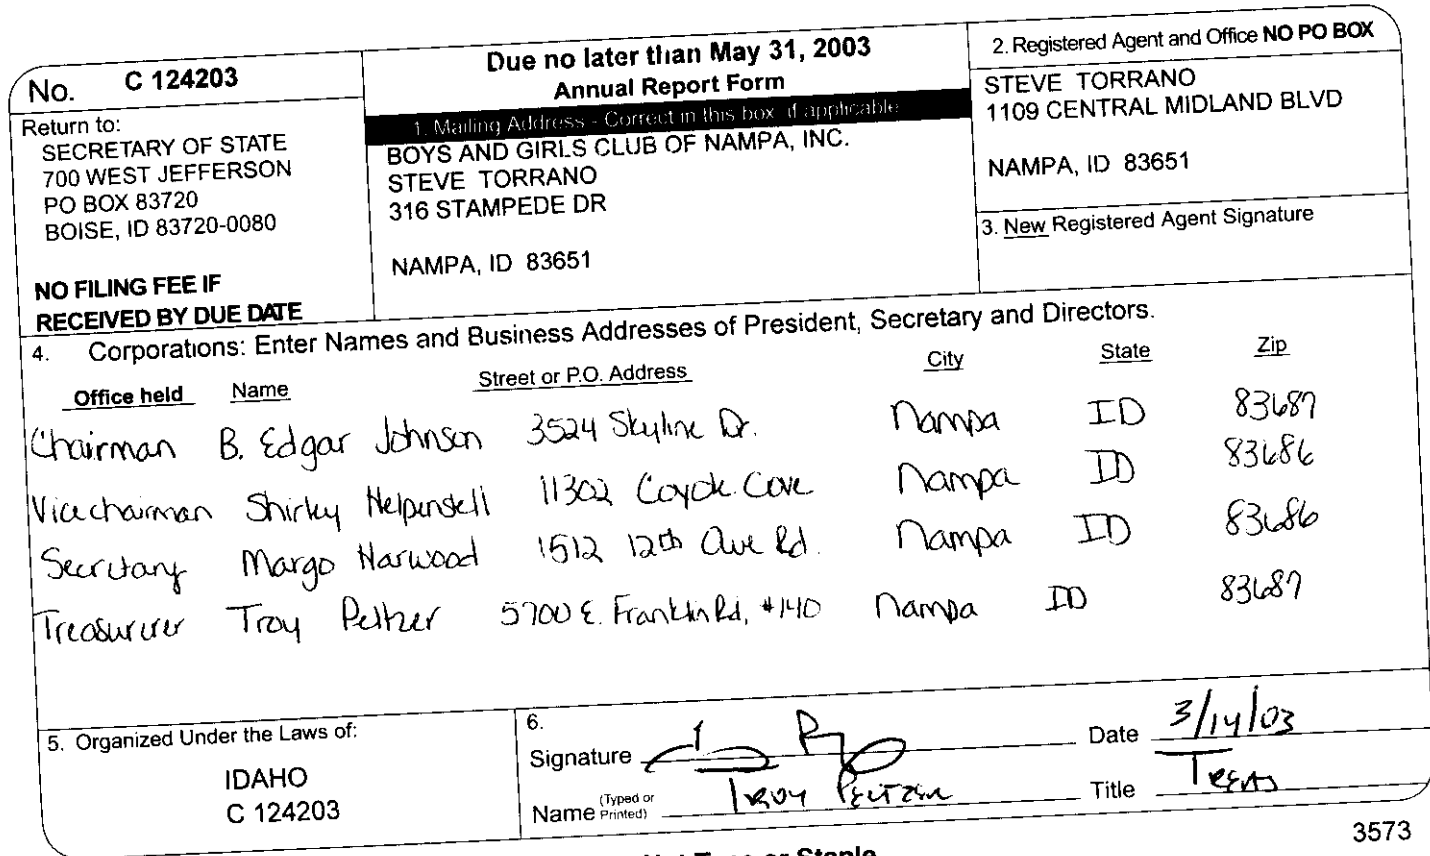 No. C 124203
Return to:
SECRETARY OF STATE
700 WEST JEFFERSON
PO BOX 83720
BOISE, ID 83720-0080
NO FILING FEE IF
RECEIVED BY DUE DATE
Due no later than May 31, 2003
Annual Report Form
1. Mailing Address - Correct in this box if applicable
BOYS AND GIRLS CLUB OF NAMPA, INC.
STEVE TORRANO
316 STAMPEDE DR
NAMPA, ID 83651
2. Registered Agent and Office NO PO BOX
STEVE TORRANO
1109 CENTRAL MIDLAND BLVD
NAMPA, ID 83651
3. New Registered Agent Signature
4. Corporations: Enter Names and Business Addresses of President, Secretary and Directors.
Office held Name Street or P.O. Address City State Zip
Chairman B. Edgar Johnson 3524 Skyline Dr. Nampa ID 83687
Vice chairman Shirley 11302 Coyote Cove Nampa ID 83686
Secretary Margo Harwood 1512 12th Ave Rd. Nampa ID 83686
Treasurer Troy Peltzer 5700 E. Franklin Rd, #140 Nampa ID 83687
5. Organized Under the Laws of:
IDAHO
C 124203
6.
Signature Date 3/14/03
Name (Typed or Printed) TROY PELTZER Title TREAS
3573